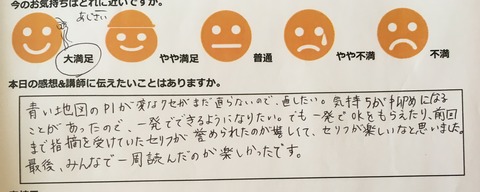 今のお気持ちはどれに近いですか。
あじさい
大満足 やや満足 普通 やや不満 不満
本日の感想&講師に伝えたいことはありますか。
青い地図のP1が変なクセがまだ直らないので、直したい。気持ちが抑めになる
ことがあったので、一発でできるようになりたい。でも一発でOKをもらえたり、前回
まで指摘を受けていたセリフが誉められたのが嬉しくて、セリフが楽しいなと思いました。
最後、みんなで一周読んだのが楽しかったです。